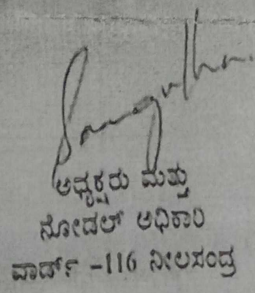 ಅಧ್ಯಕ್ಷರು ಮತ್ತು
ನೋಡಲ್ ಅಧಿಕಾರಿ
ವಾರ್ಡ್ -116 ನೀಲಸಂದ್ರ